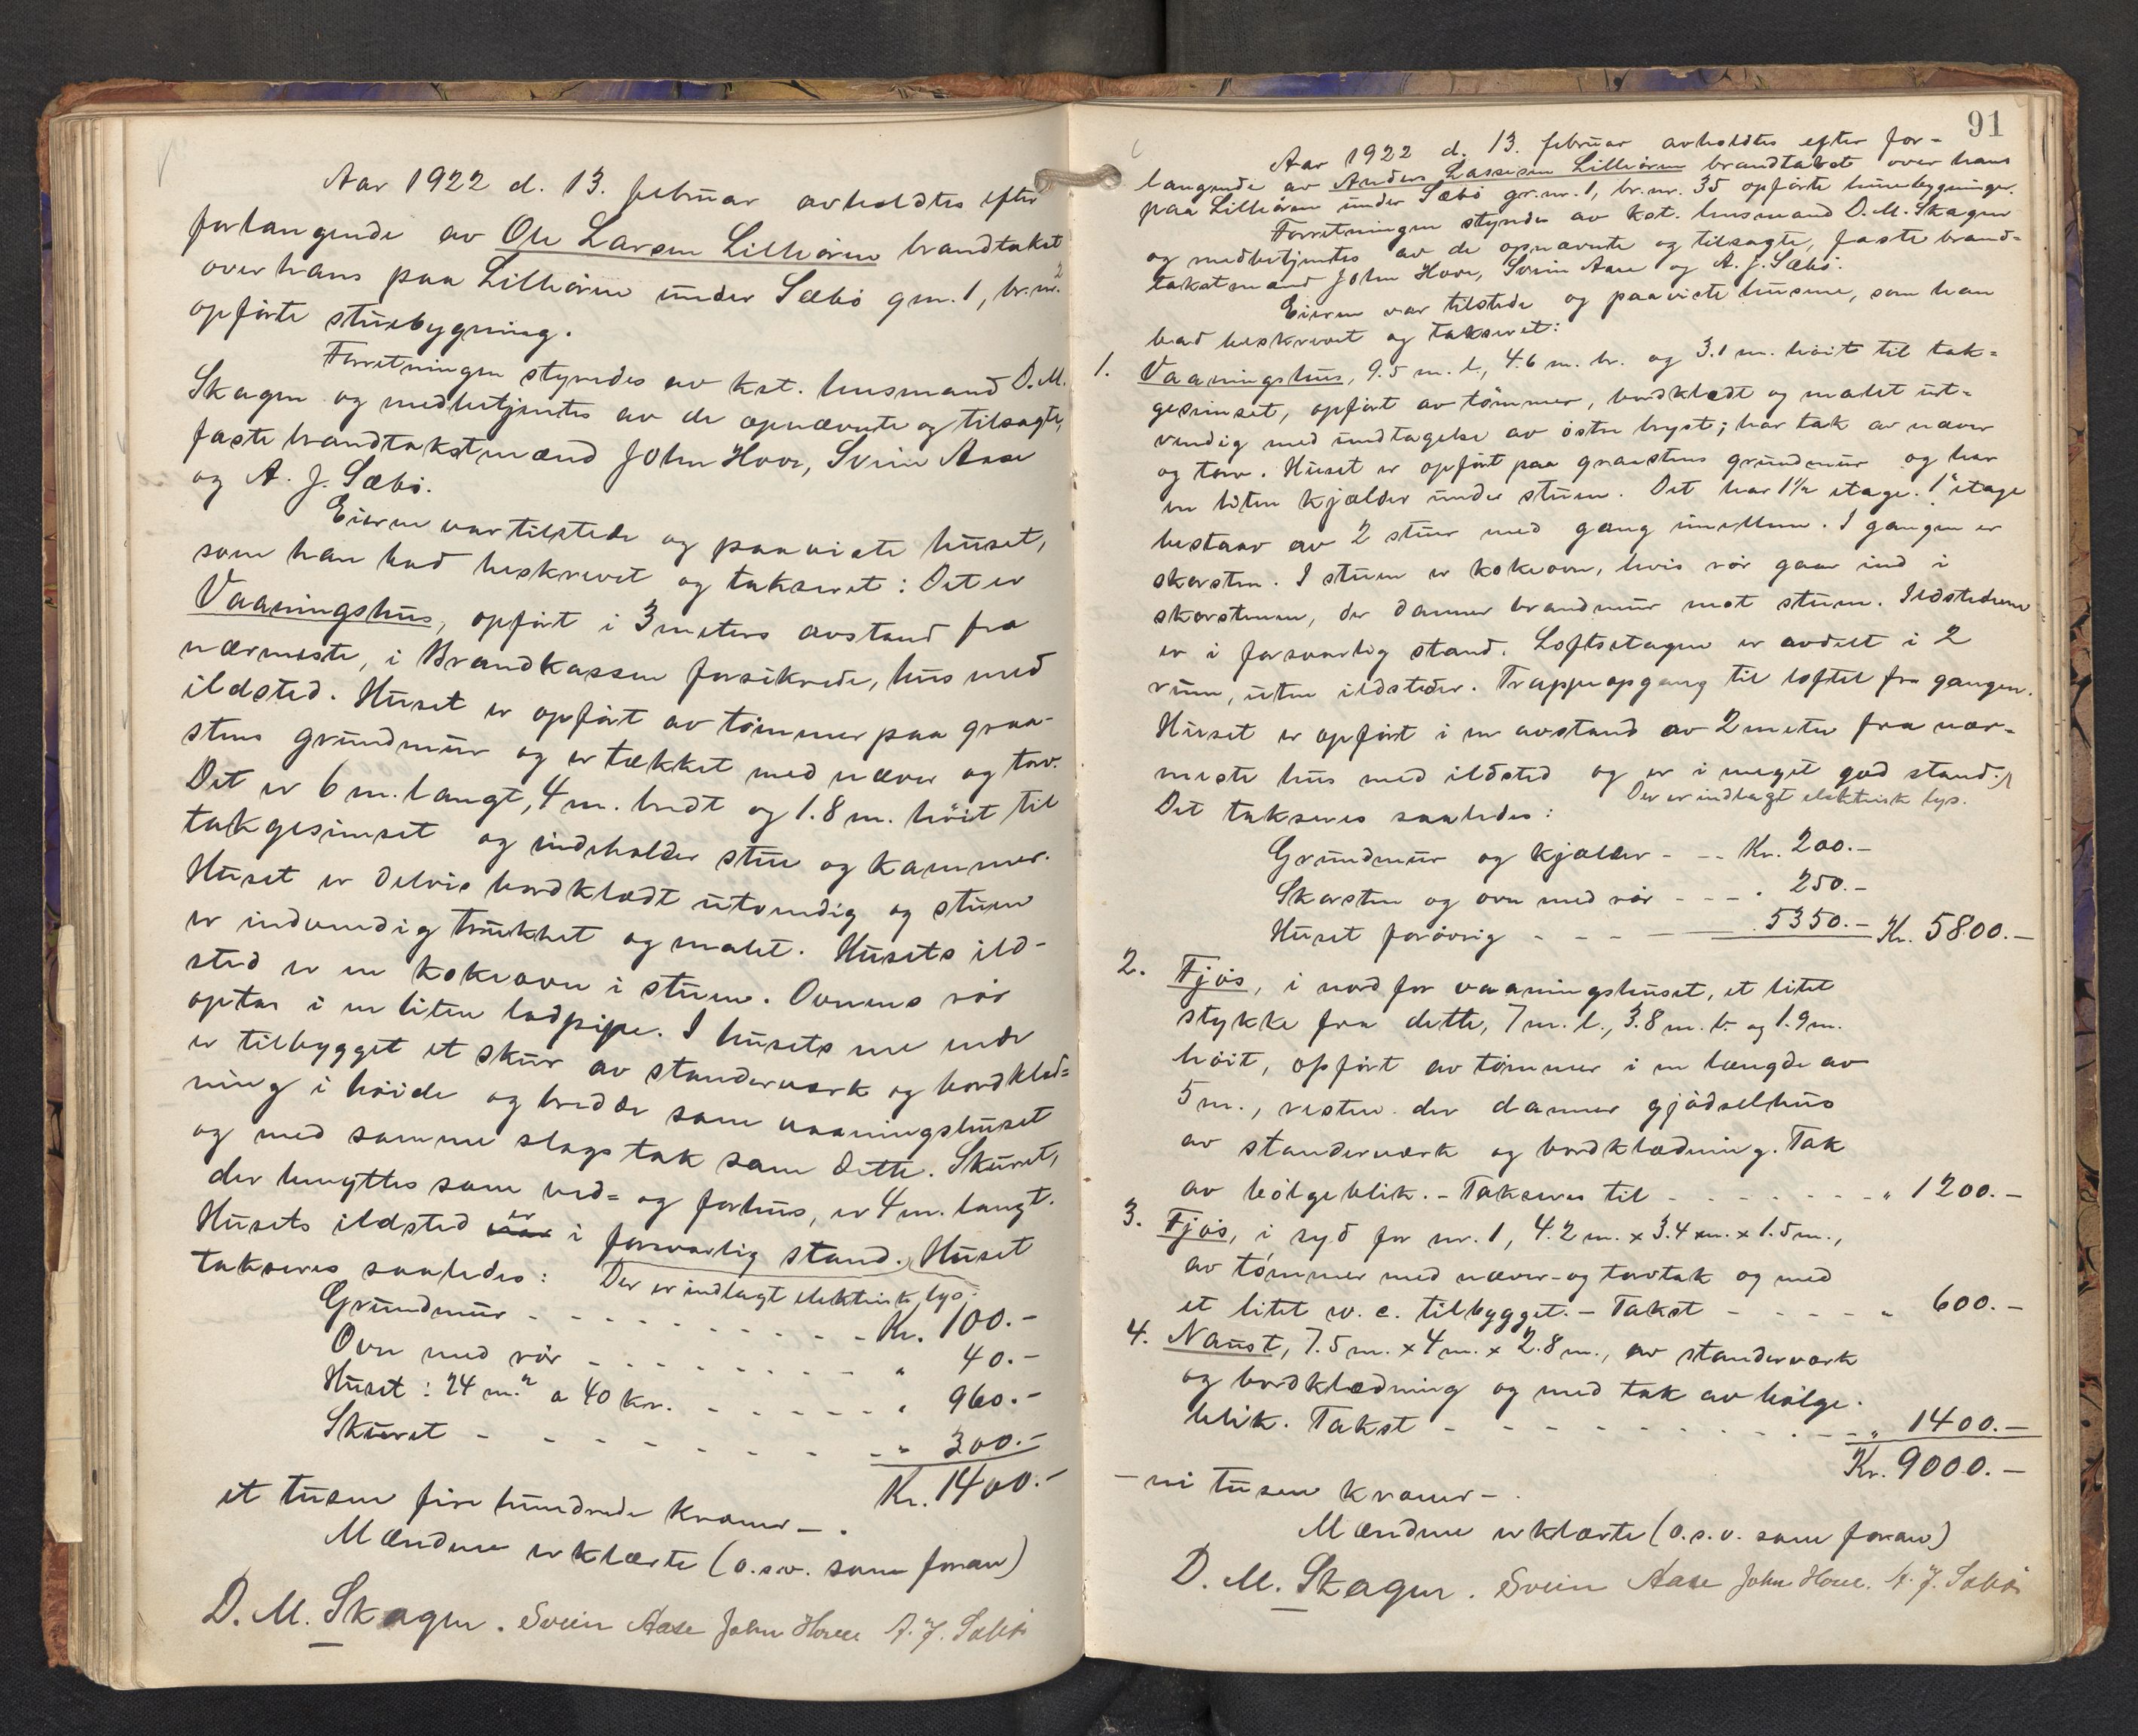 Aar 1922 d. 13. februar avholdtes efter
forlangende av Ole Larsen Lilleøren brandtakst
over hans paa Lilleøren under Sæbø gnr. 1, br.nr. 2
opførte stuebygning.
Forretningen styredes av kst. lensmand D. M.
Skagen og medbetjentes av de opnævnte og tilsagte,
faste brandtakstmænd John Hove, Svein Aase
og A. J. Sæbø.
Eieren var tilstede og paaviste huset,
som han bad beskrevet og taksert: Det er
Vaaningshus, opført i 3 meters avstand fra
nærmeste, i Brandkassen forsikrede, hus med
ildsted. Huset er opført av tømmer paa graa-
stens grundmur og er tækket med næver og torv.
Det er 6 m. langt, 4 m. bredt og 1.8 m. høit til
takgesimset og indeholder stue og kammer.
Huset er delvis bordklædt utvendig og stuen
er indvendig trukket og malet. Husets ild-
sted er en kokeovn i stuen. Ovnens rør
optas i en liten ladpipe. I husets ene ende
er tilbygget et skur av standerværk og bordklæd=
ning i høide og bredde som vaaningshuset
og med samme slags tak som dette. Skuret,
der benyttes som ved= og forhus, er 4 m. langt.
Husets ildsted er i forsvarlig stand. Huset
takseres saaledes: Der er indlagt elektrisk lys.
Grundmur - - - - - - - - - Kr. 100.-
Ovn med rør - - - - - - - - " 40.-
Huset: 24 m.² a 40 kr. - - - - - " 960.-
Skuret - - - - - - - - - " 300.-
Kr. 1400.-
et tusen fire hundrede kroner - .
Mændene erklærte (o.s.v. som foran)
D. M. Skagen. Svein Aase John Hove A. J. Sæbø
91
Aar 1922 d. 13. februar avholdtes efter for-
langende av Anders Lassesen Lilleøren brandtakst over hans
paa Lilleøren under Sæbø gr.nr. 1, br.nr. 35 opførte husebygninger.
Forretningen styredes av kst. lensmand D. M. Skagen
og medbetjentes av de opnævnte og tilsagte, faste brand=
takstmænd John Hove, Svein Aase og A. J. Sæbø.
Eieren var tilstede og paaviste husene, som han
bad beskrevet og taksert:
1. Vaaningshus, 9.5 m. l., 4.6 m. br. og 3.1 m. høit til tak=
gesimset, opført av tømmer, bordklædt og malet ut=
vendig med undtagelse av østre bryst; har tak av næver
og torv. Huset er opført paa graastens grundmur og har
en liten kjælder under stuen. Det har 1½ etage. 1ste etage
bestaar av 2 stuer med gang imellem. I gangen er
skorsten. I stuen er kokeovn, hvis rør gaar ind i
skorstenen, der danner brandmur mot stuen. Ildstederne
er i forsvarlig stand. Loftsetagen er avdelt i 2
rum, uten ildsteder. Trappeopgang til loftet fra gangen.
Huset er opført i en avstand av 2 meter fra nær-
meste hus med ildsted og er i meget god stand.
Der er indlagt elektrisk lys.
Det takseres saaledes:
Grundmur og kjælder - - - Kr. 200.-
Skorsten og ovn med rør - - - . 250.-
Huset forøvrig - - - - 5350.- Kr. 5800.-
2. Fjøs, i nord for vaaningshuset, et litet
stykke fra dette, 7 m. l., 3.8 m. b. og 1.9 m.
høit, opført av tømmer i en længde av
5 m., resten der danner gjødselhus
av standerværk og bordklædning. Tak
av bølgeblik. - Takseres til - - - - - - - " 1200.-
3. Fjøs, i syd for nr. 1, 4.2 m. x 3.4 m. x 1.5 m.,
av tømmer med næver- og torvtak og med
et litet w. c. tilbygget. - Takst - - - - - " 600.-
4. Naust, 7.5 m. x 4 m. x 2.8 m., av standerværk
og bordklædning og med tak av bølge-
blik. Takst - - - - - - - - - " 1400.-
Kr. 9000.-
- ni tusen kroner - .
Mændene erklærte (o.s.v. som foran)
D. M. Skagen. Svein Aase John Hove. A. J. Sæbø